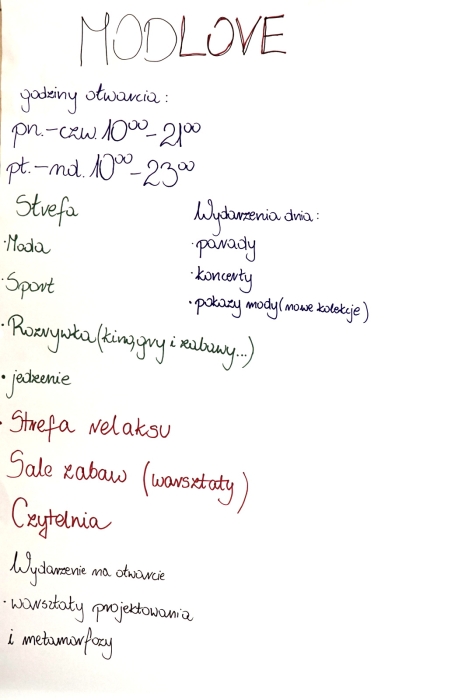 MODLOVE
godziny otwarcia:
pn.-czw. 10⁰⁰-21⁰⁰
pt.-nd. 10⁰⁰-23⁰⁰
Strefa
·Moda
·Sport
·Rozrywka (kino, gry i zabawy...)
·jedzenie
Wydarzenia dnia:
·parady
·koncerty
·pokazy mody (nowe kolekcje)
·Strefa relaksu
Sale zabaw (warsztaty)
Czytelnia
Wydarzenie na otwarcie
·warsztaty projektowania
i metamorfozy